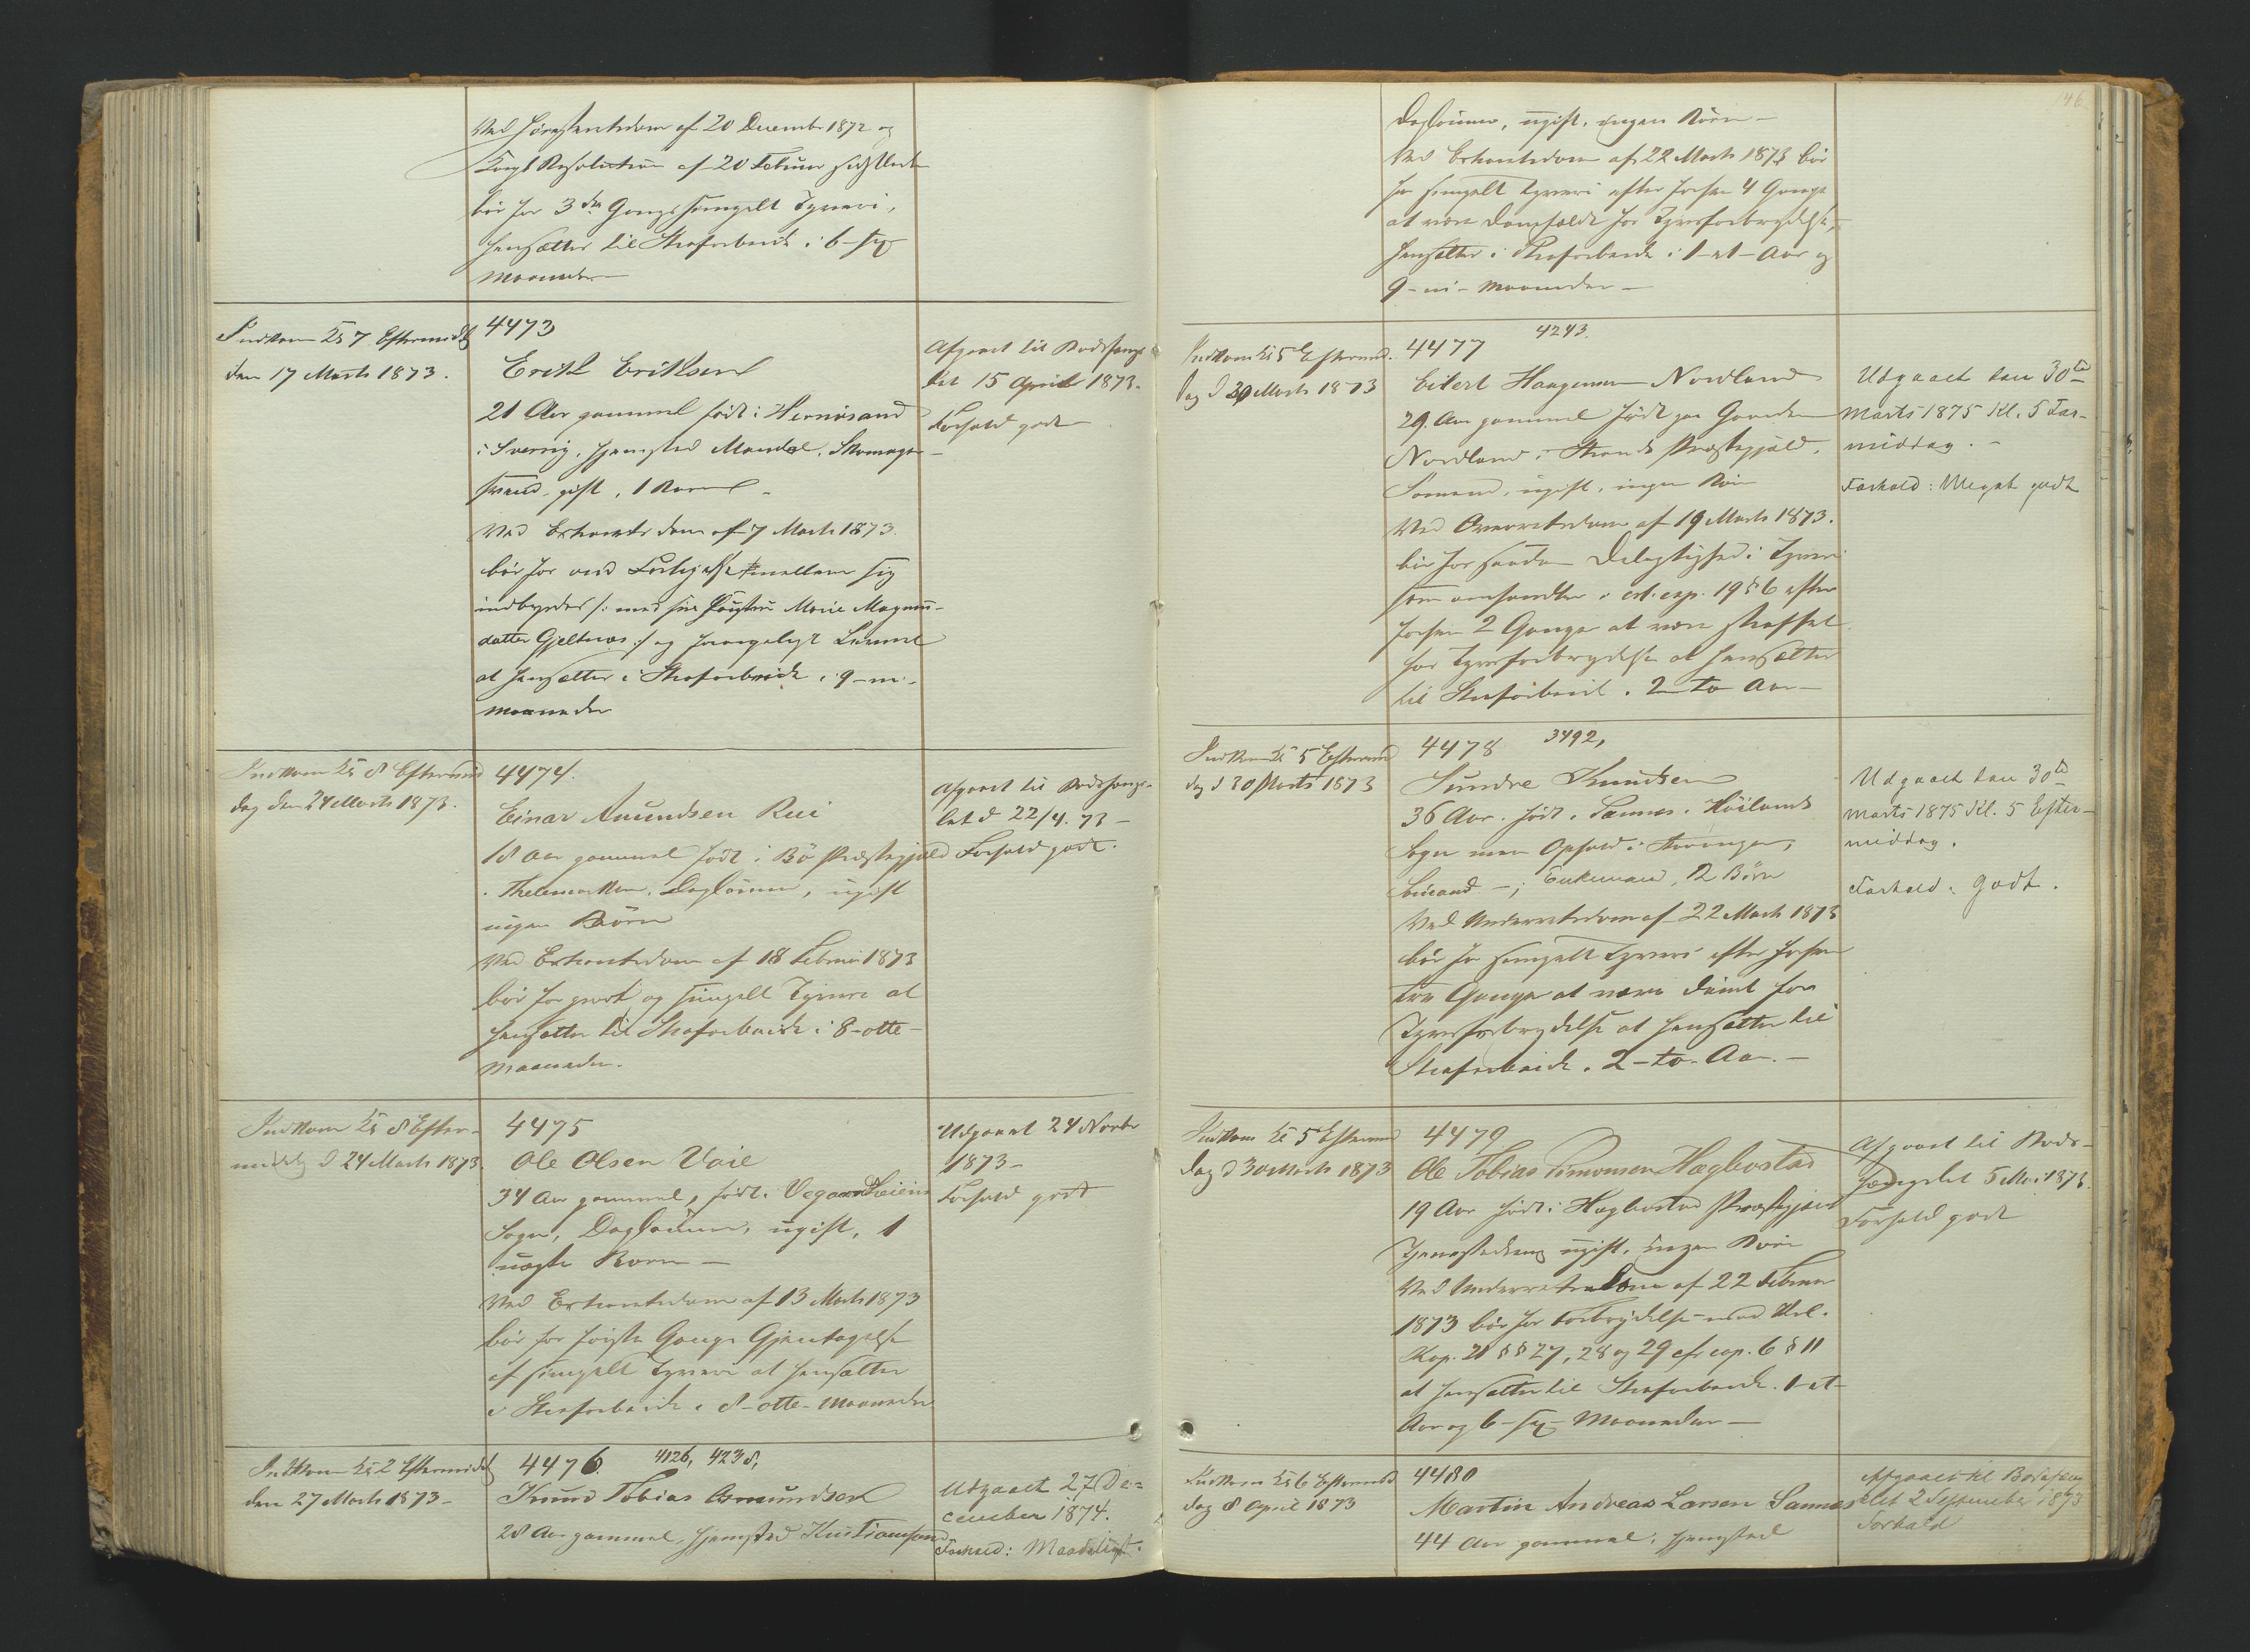 Ved Høiesteretsdom af 20 December 1872 og
Kongl Resolution af 20 Februar
bør for 3die Gang simpelt Tyveri,
hensættes til Strafarbeide i 6 - sex
Maaneder
Indkom Kl 7 Eftermidg
den 17 Marts 1873.
4473
Erick Ericksen
21 Aar gammel født i Hernösand
i Sverrig, hjemsted Mandal. Skomager-
svend, gift, 1 Barn
Ved Extraretsdom af 7 Marts 1873
bør for mellem sig
indbyrdes /: med sin Hustru Marie Magnus-
datter Gjeltnes :/ og
at hensættes i Strafarbeide i 9 - ni -
Maaneder
Afgaaet til Bodsfæng-
let 15 April 1873.
Forhold godt
Indkom Kl 8 Eftermid
dag den 24 Marts 1873.
4474.
Einar Amundsen Rui
18 Aar gammel født i Bö Præstegjæld
i Thelemarken. Dagleier, ugift
ingen Børn
Ved Extraretsdom af 18 Februar 1873
bør for grovt og simpelt Tyveri at
hensættes til Strafarbeide i 8 - otte -
Maaneder.
Afgaaet til Bodsfængs-
let d 22/4. 73 -
Forhold godt.
Indkom Kl 8 Efter-
middg d 24 Marts 1873.
4475
Ole Olsen Vaie
34 Aar gammel, født i Vegaardsheiens
Sogn, Dagleier, ugift, 1
uægte Barn -
Ved Extraretsdom af 13 Marts 1873
bør for første Gangs Gjentagelse
af simpelt Tyveri at hensættes
i Strafarbeide i 8 - otte - Maaneder
Udgaaet 24 Novbr
1873 -
Forhold godt
Indkom Kl 2 Eftermidd
den 27 Marts 1873 -
4476. 4126, 4238,
Knud Tobias Osmundsen
28 Aar gammel, hjemsted Kristiansand
Udgaaet 27 De=
cember 1874.
Forhold: Maadeligt.
146
Dagleier, ugift, ingen Børn -
Ved Extraretsdom af 22 Marts 1873 bør
for simpelt Tyveri efter forhen 4 Gange
at være domfældt for Tyvsforbrydelse,
hensættes i Strafarbeide i 1 - et - Aar og
9 - ni - Maaneder -
Indkom Kl 5 Eftermid.
dag d 30 Marts 1873
4477 4243.
Eilert Haagensen Nordland
29 Aar gammel født paa Gaarden
Nordland i Strands Præstegjæld.
Sømand, ugift, ingen Børn
Ved Overretsdom af 19 Marts 1873.
bør for saadan Delagtighed i Tyveri
som omhandles i crl. cap. 19 § 6 efter
forhen 2 Gange at være straffet
for Tyvsforbrydelse at hensættes
til Strafarbeide i 2 - to Aar -
Udgaaet den 30te
Marts 1875 Kl. 5 Efter-
middag. -
Forhold: Meget godt
Indkom Kl 5 Eftermid
dag d 30 Marts 1873
4478 3492,
Sundre Knudsen
36 Aar. født i Sannes i Høilands
Sogn men Ophold i Stavanger,
Sømand -; Enkemand, 2 Børn
Ved Underretsdom af 22 Marts 1873
bør for simpelt Tyveri efter forhen
tre Gange at være dømt for
Tyvsforbrydelse at hensættes til
Strafarbeide i 2 - to - Aar. -
Udgaaet den 30te
Marts 1875 Kl. 5 Efter-
middag.
Forhold: godt.
Indkom Kl 5 Eftermid
dag d 30 Marts 1873
4479
Ole Tobias Simonsen Hægbostad
19 Aar født i Hægbostad Præstegjæld
Tjenestedreng ugift, ingen Børn
Ved Underretsdom af 22 Februar
1873 bør for Forbrydelse mod Crl.
Kap. 21 §§ 27, 28 og 29 cfr cap. 6 § 11
at hensættes til Strafarbeide i 1 - et -
Aar og 6 - sex Maaneder -
Afgaaet til Bods-
fængslet 5 Mai 1873.
Forhold godt
Indkom Kl 6 Eftermid
dag 8 April 1873
4480
Martin Andreas Larsen Sannes
44 Aar gammel, hjemsted
Afgaaet til Bodsfæng
slet 2 September 1873
Forhold